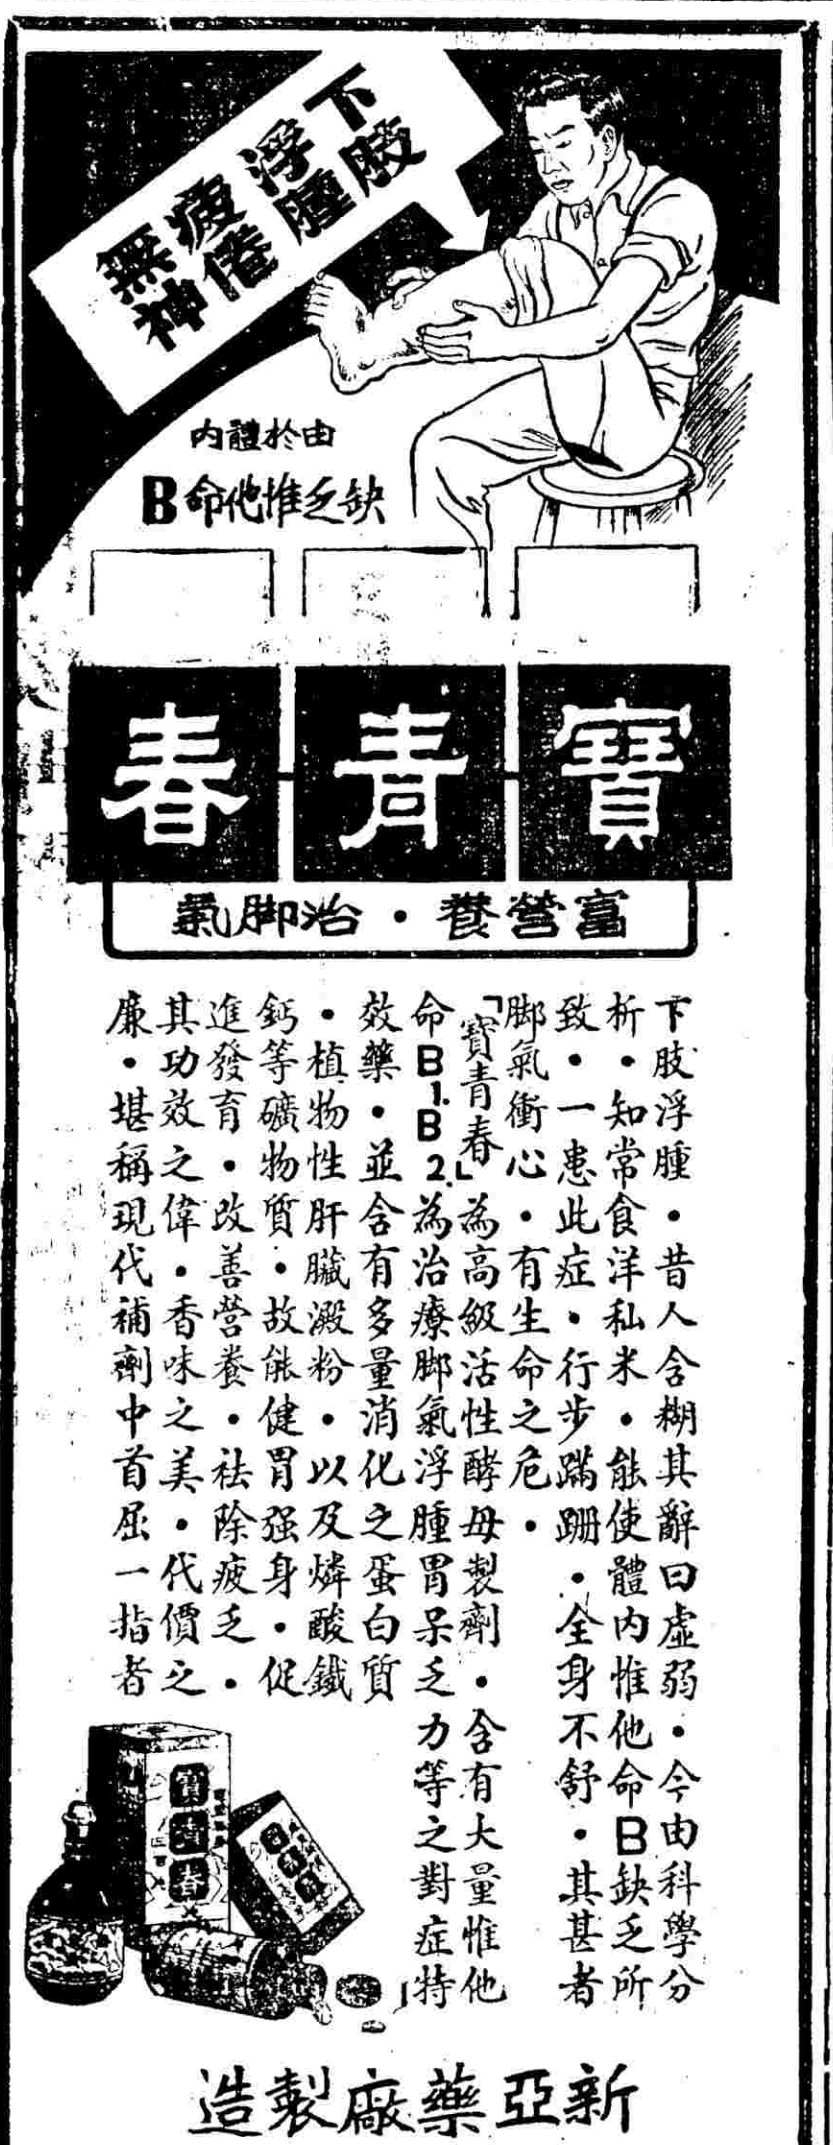 下肢
浮腫
疲倦
無神
由於體內
缺乏惟他命B
寶青春
富營養・治脚氣
下肢浮腫・昔人含糊其辭曰虛弱・今由科學分
析・知常食洋私米・能使體內惟他命B缺乏所
致・一患此症・行步蹣跚・全身不舒・其甚者
脚氣衝心・有生命之危・
「寶青春」為高級活性酵母製劑・含有大量惟他
命B1.B2.為治療脚氣浮腫胃呆乏力等之對症特
效藥・並含有多量消化之蛋白質
・植物性肝臟澱粉・以及燐酸鐵
鈣等礦物質・故能健胃强身・促
進發育・改善營養・祛除疲乏・
其功效之偉・香味之美・代價之
廉・堪稱現代補劑中首屈一指者
寶青春
新亞藥廠製造